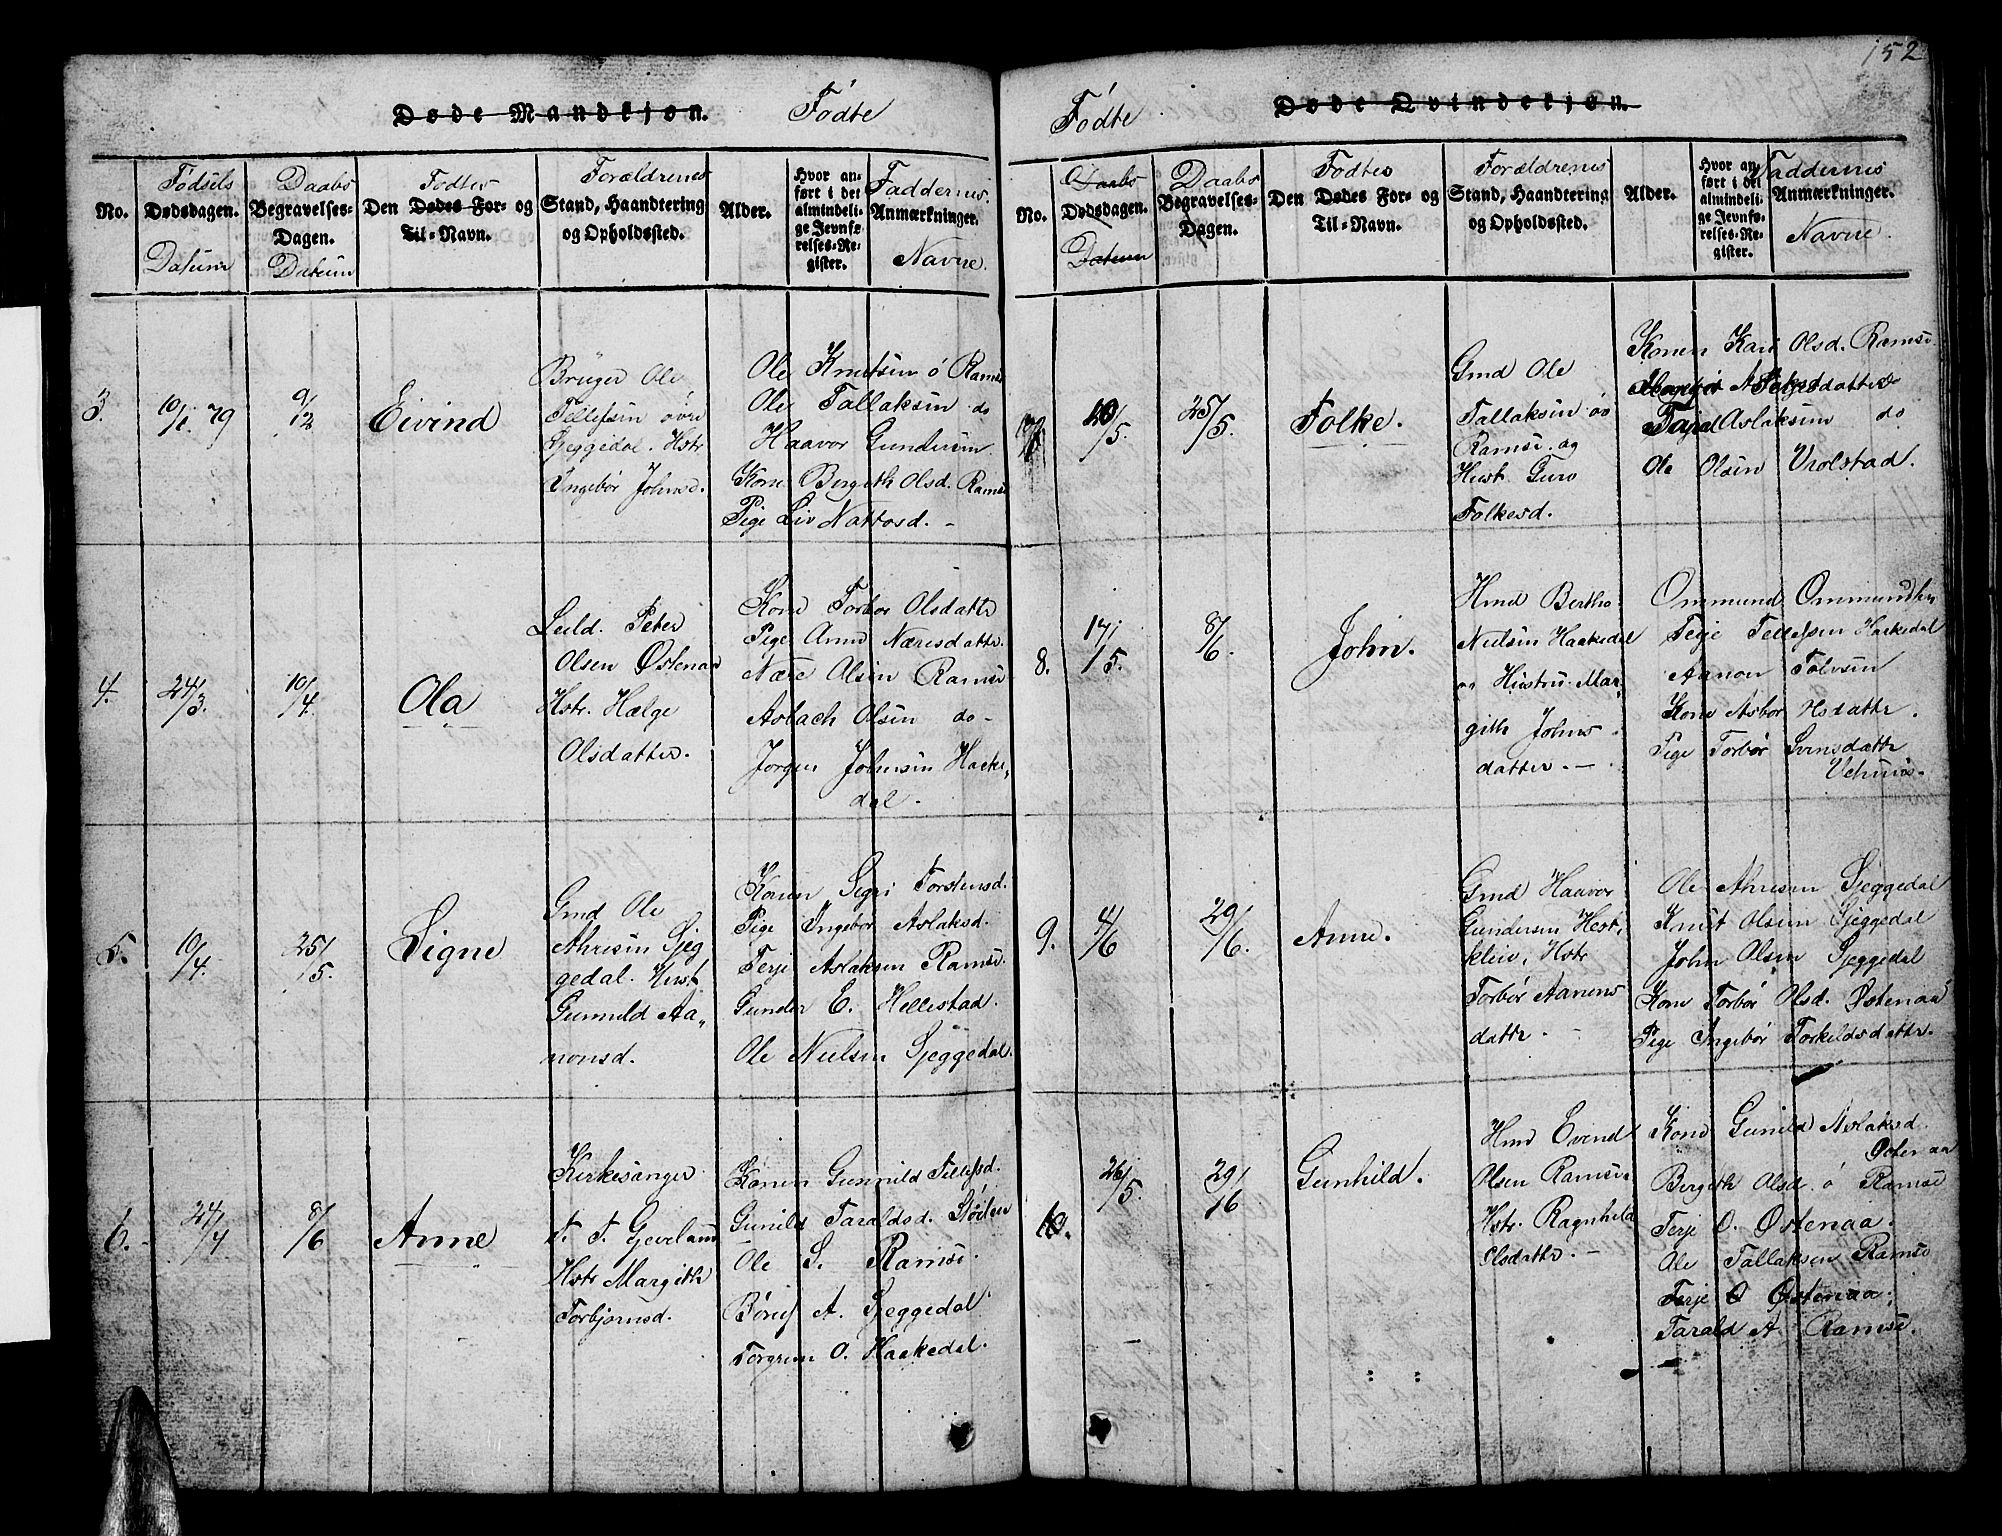 152
Døde Mandkjøn. Fødte
No.
Fødsels
Dødsdagen.
Datum
Daabs
Begravelses-
Dagen.
Datum
Fødtes
Den Dødes For- og
Til-Navn.
Forældrenes
Stand, Haandtering
og Opholdssted.
Alder.
Hvor an-
ført i det
almindeli-
ge Jevnfø-
relses-Re-
gister.
Faddernes
Anmærkninger.
Navne.
3.
10/1 79
9/12
Eivind
Brüger Ole
Tellefsen øvre
Sjeggedal. Hstr
Ingebor Johnsd.
Ole Knutsen ø Ramse
Ole Tallaksen do
Haavor Gundersen
Kone Bergith Olsd. Ramse
Pige Liv Nattosd. -
4.
24/3.
10/4.
Ola
Leild. Peter
Olsen Østenaa
Hstr. Helge
Olsdatter.
Kone Torbor Olsdatter
Pige Anne Næresdatter.
Nære Olsen Ramse
Aslach Olsen do-
Jørgen Johnsen Hacke„
dal.
5.
10/4.
25/5.
Signe
Gmd Ole
Ahresen Sjeg
gedal. Hust.
Gunnild Aa„
nonsd.
Konen Sigri Torstensd.
Pige Ingebor Aslaksd.
Terje Aslaksen Ramse.
Gunder E. Hellestad.
Ole Nielsen Sjeggedal.
6.
24/4
8/6
Anne
Kirkesanger
T. T. Gjeveland
Hstr Margith
Torbjornsd.
Konen Gunnild Tellefsd.
Gunild Taraldsd. Støilen
Ole S. Ramse.
A. Sjeggedal
Torgrim O. Haakedal.
Fødte Døde Qvindekjøn.
No.
Daabs
Dødsdagen.
Datum
Daabs
Begravelses-
Dagen.
Fødtes
Den Dødes For- og
Til-Navn.
Forældrenes
Stand, Haandtering
og Opholdssted.
Alder.
Hvor an-
ført i det
almindeli-
ge Jevnfø-
relses-Re-
gister.
Faddernes
Anmærkninger.
Navne.
7.
10/5.
25/5.
Folke.
Gmd Ole
Tallaksen øv
Ramse. og
Hust. Guro
Folkesd.
Konen Kari Olsd. Ramse
Aslaksen do
Ole Olsen Vrolstad.
8.
17/5.
8/6.
John.
Hmd Bertho
Nielsen Haakedal
Hustru Mar„
gith Johns
datter. -
Ommund Ommundsen
Terje Tellefsen Haakedal
Aanon Tolvsen
Kone Asbor Olsdattr.
Pige Torbor Svensdattr
9.
4/6
29/6.
Anne.
Gmd Haavor
Gundersen Hest„
kleiv, Hstr
Torbor Aanens
dattr. -
Ole Ahresen Sjeggedal
Knut Olsen Sjeggedal
John Olsen Sjeggedal
Kone Torbor Olsd. Østenaa
Pige Ingebor Torkildsdattr.
10.
26/5.
29/6
Gunhild.
Hmd Evend
Olsen Ramse
Hstr. Ragnhild
Olsdattr. -
Kone Gunild Aslaksd.
Østenaa
Bergith Olsd. ø Ramse
Terje O. Østenaa.
Ole Tallaksen Ramse
Terje O Østenaa.
Tarald A. Ramse.